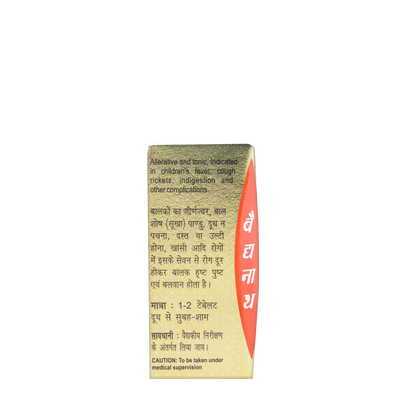 Alterative and tonic, Indicated
in children's fever, cough
rickets, indigestion and
other complications.
बालकों का जीर्णज्वर, बाल
शोष (सूखा) पाण्डु, दूध न
पचना, दस्त या उल्टी
होना, खांसी आदि रोगों
में इसके सेवन से रोग दूर
होकर बालक हृष्ट पुष्ट
एवं बलवान होता है।
मात्रा : 1-2 टेबलेट
दूध से सुबह-शाम
सावधानी : वैद्यकीय निरीक्षण
के अंतर्गत लिया जाय।
CAUTION: To be taken under
medical supervision
वैद्यनाथ